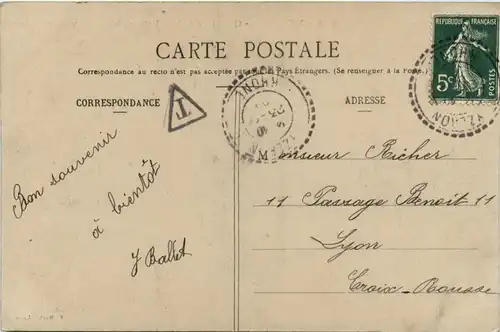 CARTE POSTALE
Correspondance au recto n'est pas acceptée par tous les Pays Étrangers. (Se renseigner à la Poste.)
CORRESPONDANCE
ADRESSE
RÉPUBLIQUE FRANÇAISE
5c
POSTES
T
RHONE
Bon souvenir
à bientôt
J Ballet
Monsieur Richer
11 Passage Benoit 11
Lyon
Croix-Rousse